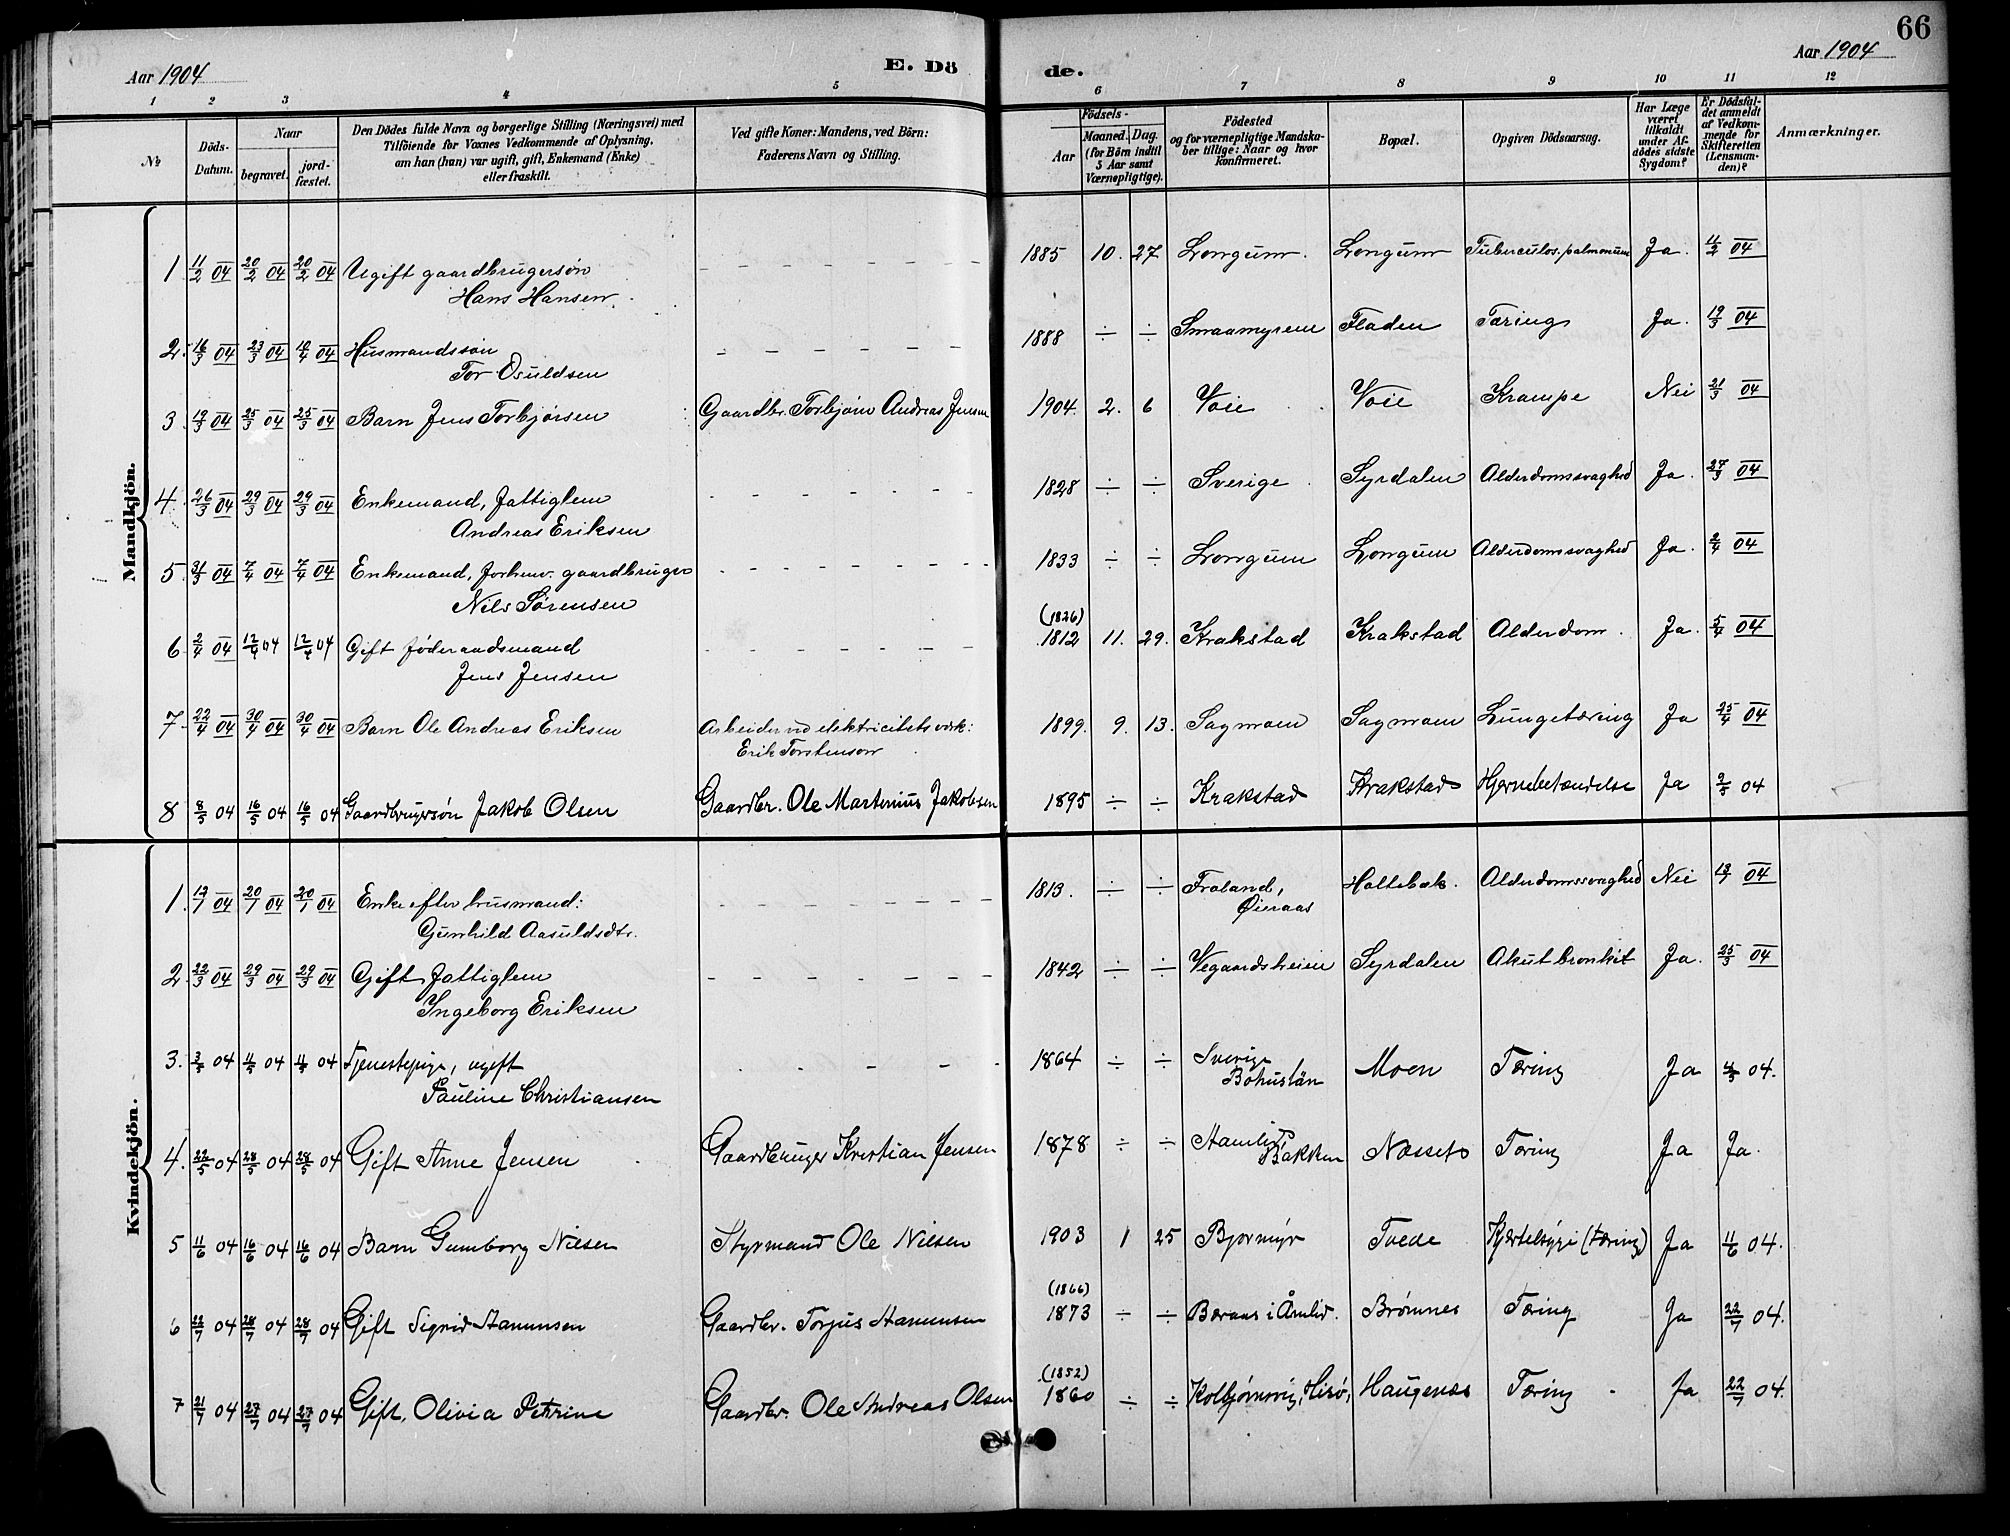 66
Aar 1904
E. Dö
de.
Aar 1904
1 2 3 4 5 6 7 8 9 10 11 12
No
Döds-Datum.
Naar
begravet.
jord-fæstet.
Den Dödes fulde Navn og borgerlige Stilling (Næringsvei) med
Tilföiende for Voxnes Vedkommende af Oplysning,
om han (hun) var ugift, gift, Enkemand (Enke)
eller fraskilt.
Ved gifte Koner: Mandens, ved Börn:
Faderens Navn og Stilling.
Födsels-
Aar
Maaned. Dag.
(for Börn indtil
5 Aar samt
Værnepligtige).
Födested
og for værnepligtige Mandska-
ber tillige: Naar og hvor
konfirmeret.
Bopæl.
Opgiven Dödsaarsag.
Har Læge
været
tilkaldt
under Af-
dödes sidste
Sygdom?
Er Dödsfal-
det anmeldt
af Vedkom-
mende for
Skifteretten
(Lensman-
den)?
Anmærkninger.
Mandkjön.
1 11/2 04 20/2 04 20/2 04 Ugift gaardbrugersøn
Hans Hansen
1885 10. 27 Longum. Longum Tuberculos. palmonum Ja. 11/2 04
2. 16/3 04 23/3 04 10/4 04 Husmandssøn
Tor Osuldsen
1888 ÷ ÷ Smaamyrene Fladen Tæring Ja. 19/3 04
3 19/3 04 25/3 04 25/3 04 Barn Jens Torbjørsen Gaardbr. Torbjørn Andreas Jensen
1904. 2. 6 Voie Voie Krampe Nei 21/3 04
4. 26/3 04 29/3 04 29/3 04 Enkemand, Fattiglem
Andreas Eriksen
1828 ÷ ÷ Sverige Syrdalen Alderdomssvaghed Ja. 27/3 04
5. 31/3 04 7/4 04 7/4 04 Enkemand, forhenv. gaardbruger
Nils Sørensen
1833 ÷ ÷ Longum Longum Alderdomssvaghed Ja. 2/4 04
6 2/4 04 12/4 04 12/4 04 Gift føderaadsmand
Jens Jensen
(1826)
1812 11. 29. Krakstad Krakstad Alderdom. Ja. 5/4 04
7. 22/4 04 30/4 04 30/4 04 Barn Ole Andreas Eriksen Arbeider ved elektricitetsværk:
Erik Torstenson
1899. 9. 13. Sagmoen Sagmoen Lungetæring Ja 25/4 04
8 8/5 04 16/5 04 16/5 04 Gaardbrugersøn Jakob Olsen Gaardbr. Ole Martinius Jakobsen
1895 ÷ ÷ Krakstad Krakstad Hjernebetændelse Ja 9/5 04
Kvindekjön.
1. 04 20/1 04 20/1 04 Enke efter husmand:
Gunhild Aasuldsdtr.
1813. ÷ ÷ Froland,
Øieraas
Holtebak. Alderdomssvaghed Nei 04
2. 22/3 04 29/3 04 29/3 04 Gift Fattiglem
Ingeborg Eriksen
1842 ÷ ÷ Vegaardsheien Syrdalen Akut bronkit Ja. 25/3 04
3. 3/5 04 11/5 04 11/5 04 Tjenestepige, ugift
Pauline Christiansen
1864 ÷ ÷ Sverige
Bohuslän
Moen Tæring Ja 4/5 04.
4. 22/5 04 28/5 04 28/5 04 Gift Anne Jensen Gaardbruger Kristian Jensen
1878 ÷ ÷
Bakken
Næsset Tæring Ja Ja.
5 11/6 04 16/6 04 16/6 04 Barn Gumborg Nilsen Styrmand Ole Nilsen
1903 1 25 Bjormyr Tvede Kjertelsyge (tæring) Ja 11/6 04.
6 22/7 04 28/7 04 28/7 04 Gift Sigrid Aanunsen Gaardbr. Torjus Aanunsen
(1866)
1873 ÷ ÷ Beraas i Åmlid. Brømnes Tæring Ja 22/7 04.
7 21/7 04 27/7 04 27/7 04 Gift, Olivia Petrine Gaardbr. Ole Andreas Olsen
(1852)
1860 ÷ ÷ Kolbjørnsvig, Hisø, Haugenæs Tæring Ja 22/7 04.